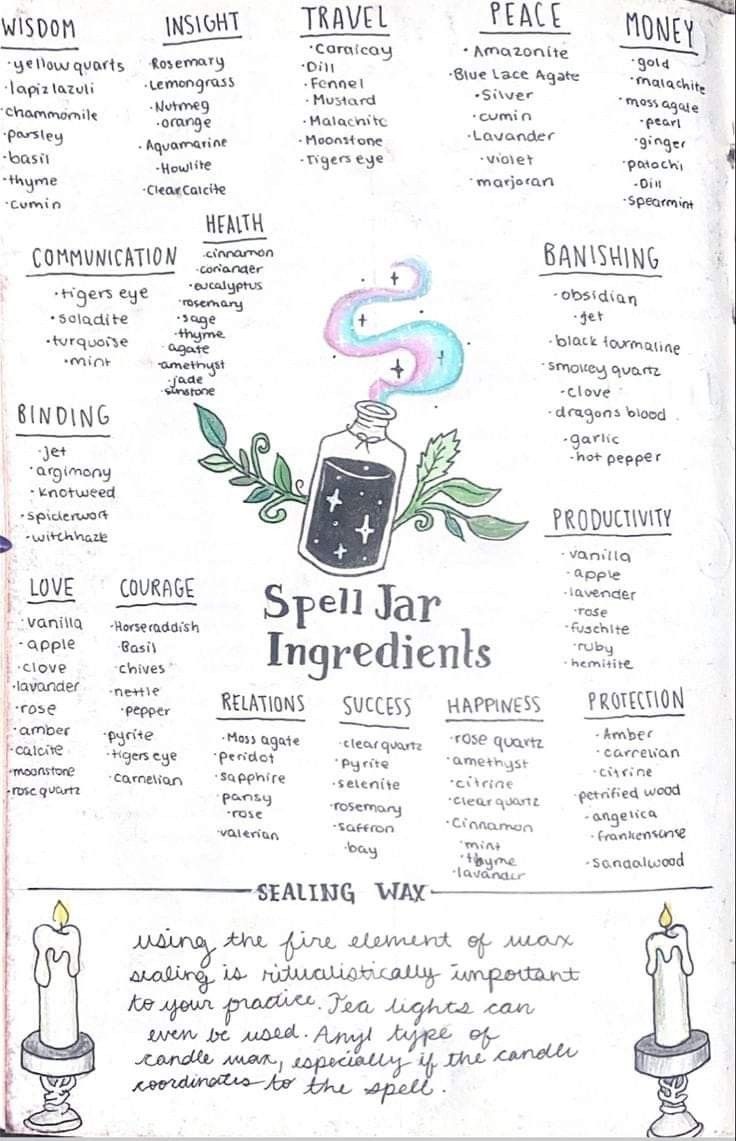 WISDOM
• yellow quarts
• lapiz lazuli
• chammomile
• parsley
• basil
• thyme
• cumin
INSIGHT
• Rosemary
• Lemongrass
• Nutmeg
• orange
• Aquamarine
• Howlite
• Clear Calcite
TRAVEL
• Caraicay
• Dill
• Fennel
• Mustard
• Malachite
• Moonstone
• Tigers eye
PEACE
• Amazonite
• Blue Lace Agate
• Silver
• cumin
• Lavander
• violet
• marjoran
MONEY
• gold
• malachite
• moss agate
• pearl
• ginger
• patochi
• Dill
• Spearmint
HEALTH
• cinnamon
• coriander
• eucalyptus
• rosemary
• sage
• thyme
• agate
• amethyst
• jade
• sunstone
COMMUNICATION
• tigers eye
• soladite
• turquoise
• mint
BANISHING
• obsidian
• jet
• black tourmaline
• smokey quartz
• clove
• dragons blood
• garlic
• hot pepper
BINDING
• jet
• argimony
• knotweed
• spiderwort
• witchhazle
PRODUCTIVITY
• vanilla
• apple
• lavender
• rose
• fuschite
• ruby
• hemitite
LOVE
• vanilla
• apple
• clove
• lavander
• rose
• amber
• calcite
• moonstone
• rose quartz
COURAGE
• Horseraddish
• Basil
• chives
• nettle
• pepper
• pyrite
• tigers eye
• carnelian
Spell Jar
Ingredients
RELATIONS
• Moss agate
• peridot
• sapphire
• pansy
• rose
• valerian
SUCCESS
• clear quartz
• Pyrite
• selenite
• rosemary
• saffron
• bay
HAPPINESS
• rose quartz
• amethyst
• citrine
• clear quartz
• Cinnamon
• mint
• thyme
• lavander
PROTECTION
• Amber
• carrelian
• citrine
• petrified wood
• angelica
• frankensense
• Sandalwood
SEALING WAX
using the fire element of wax
sealing is ritualistically important
to your practice. Tea lights can
even be used. Anyl type of
candle wax, especially if the candle
coordinates to the spell.